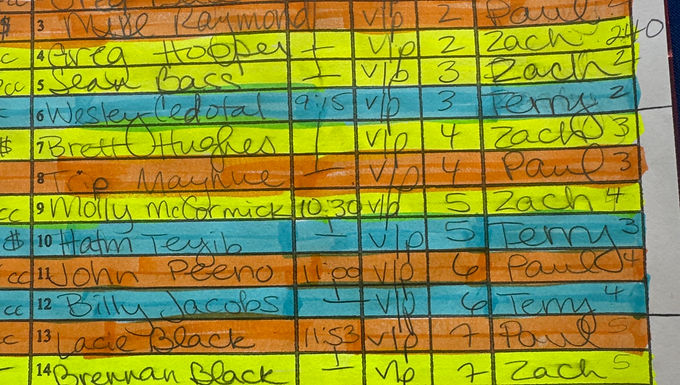 $ 3 Mike Raymond vip 2 Paul 2
cc 4 Greg Hooper - vip 2 Zach 2
cc 5 Sean Bass - vip 3 Zach 2
6 Wesley Cedotal 9:15 vip 3 Terry 2
$ 7 Brett Hughes vip 4 Zach 3
8 Trip Mayhue - vip 4 Paul 3
cc 9 Molly McCormick 10:30 vip 5 Zach 4
$ 10 Hatm Teyib - vip 5 Terry 3
cc 11 John Peeno 11:00 vip 6 Paul 4
cc 12 Billy Jacobs - vip 6 Terry 4
13 Lacie Black 11:53 vip 7 Paul 5
14 Brennan Black - vip 7 Zach 5